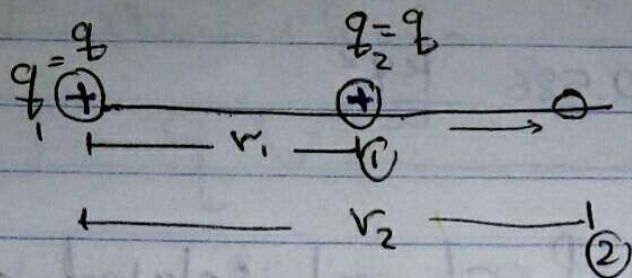 q₁ = q
q₂ = q
+
+
r₁
①
r₂
②